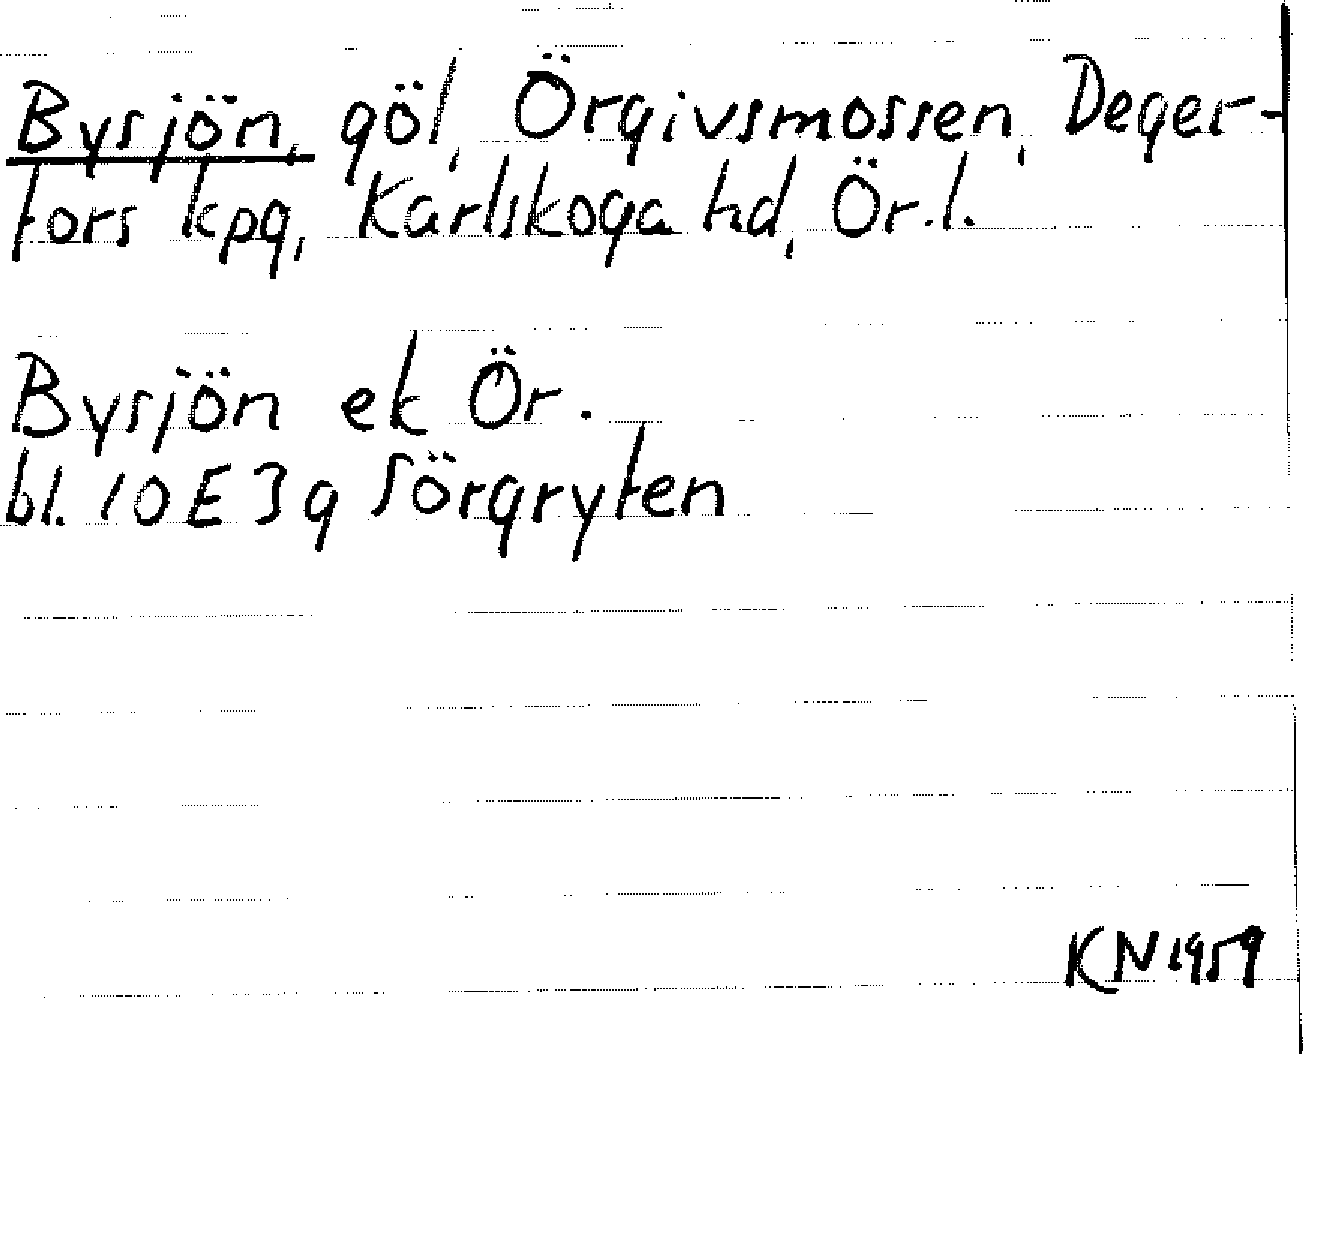 Bysjön, göl, Örgivsmossen, Deger-
fors kpg, Karlskoga hd, Ör.l.
Bysjön ek Ör.
bl. 10E3g Sörgryten
KN 1959